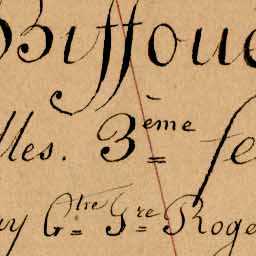 Biffoue
lles. 3ème fe
y Gtre Gre Roge